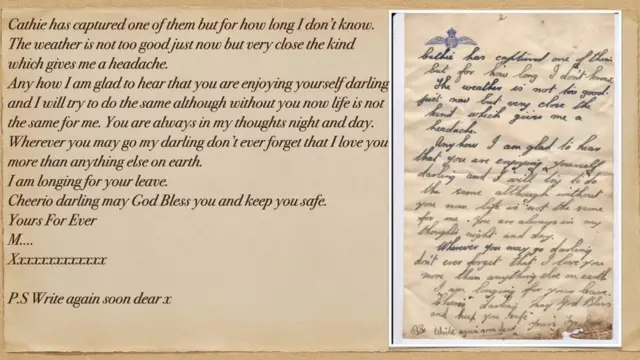 Cathie has captured one of them but for how long I don't know.
The weather is not too good just now but very close the kind
which gives me a headache.
Any how I am glad to hear that you are enjoying yourself darling
and I will try to do the same although without you now life is not
the same for me. You are always in my thoughts night and day.
Wherever you may go my darling don't ever forget that I love you
more than anything else on earth.
I am longing for your leave.
Cheerio darling may God Bless you and keep you safe.
Yours For Ever
M....
Xxxxxxxxxxxxx
P.S Write again soon dear x
2
Cathie has captured one of them
but for how long I don't know.
The weather is not too good
just now but very close the
kind which gives me a
headache.
Any how I am glad to hear
that you are enjoying yourself
darling and I will try to do
the same although without
you now life is not the same
for me. You are always in my
thoughts night and day.
Wherever you may go darling
don't ever forget that I love you
more than anything else on earth
I am longing for your leave.
Cheerio darling may God Bless
and keep you safe
Write again soon dear Yours